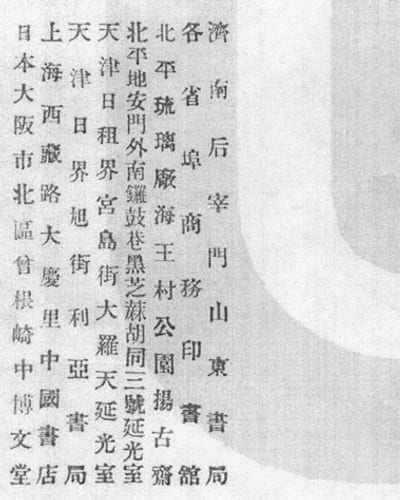 濟南后宰門山東書局
各省埠商務印書館
北平琉璃廠海王村公園揚古齋
北平地安門外南鑼鼓巷黑芝蔴胡同三號延光室
天津日租界宮島街大羅天延光室
天津日界旭街利亞書局
上海西藏路大慶里中國書店
日本大阪市北區曾根崎中博文堂